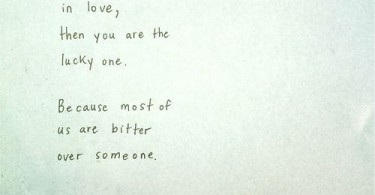 in love,
then you are the
lucky one.
Because most of
us are bitter
over someone.